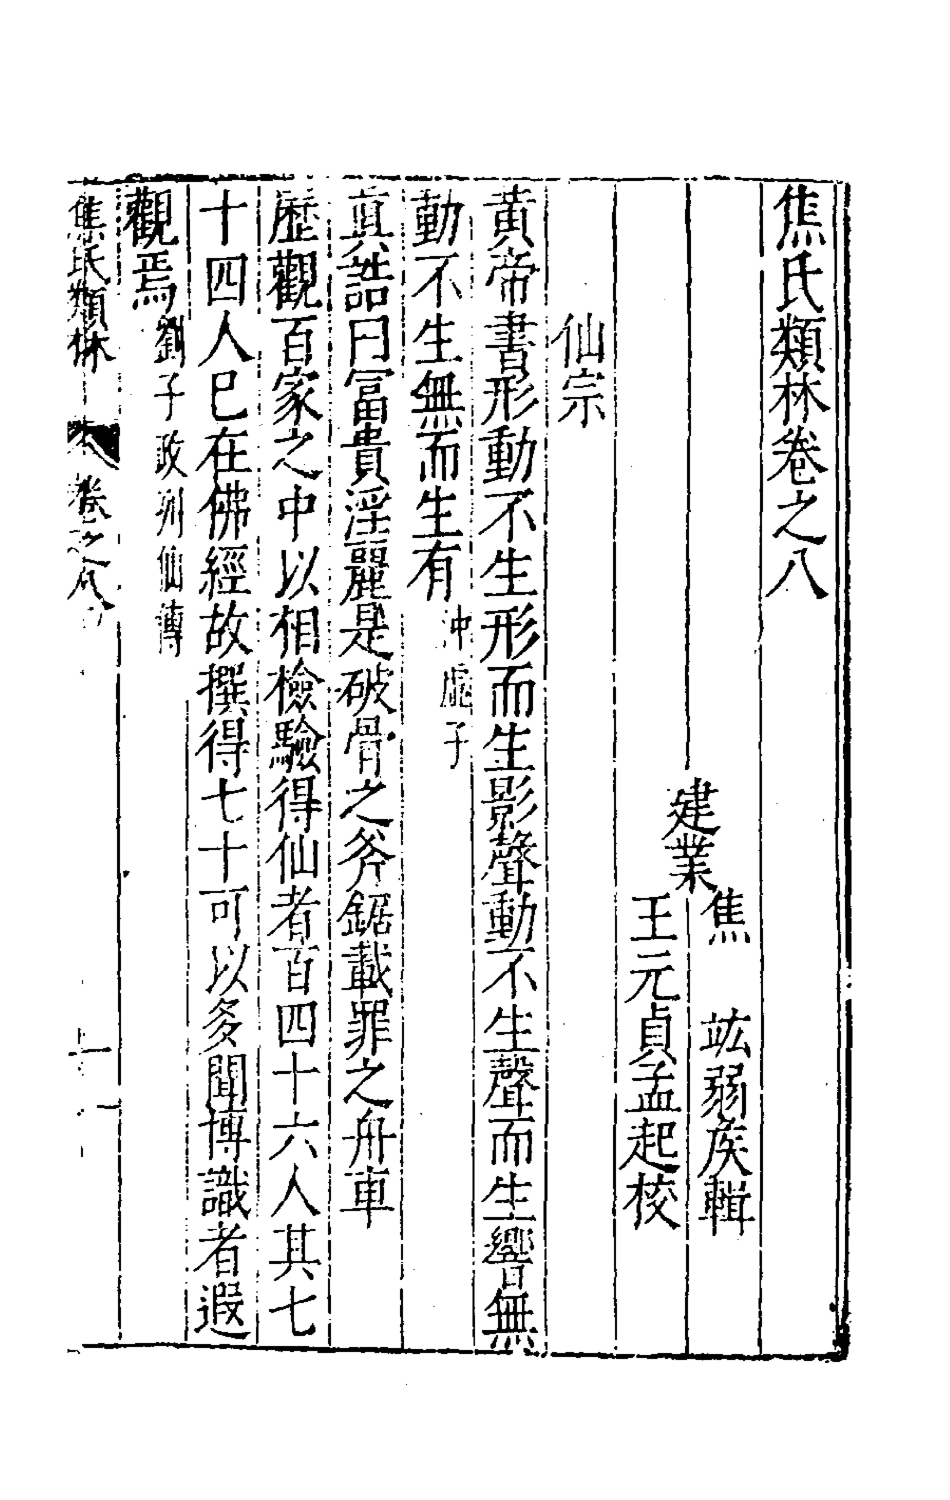 焦氏類林卷之八
建業
焦　竑弱侯輯
王元貞孟起校
仙宗
黃帝書形動不生形而生影聲動不生聲而生響無
動不生無而生有沖虛子
眞誥曰冨貴淫麗是破骨之斧鋸載罪之舟車
歷觀百家之中以相檢驗得仙者百四十六人其七
十四人已在佛經故撰得七十可以多聞博識者遐
觀焉劉子政列仙傳
焦氏類林
卷之八
一